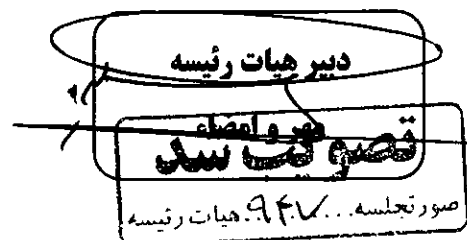 دبیر هیات رئیسه
مهر و امضاء
تصویب شد
صورتجلسه...۹۴۷..هیات رئیسه